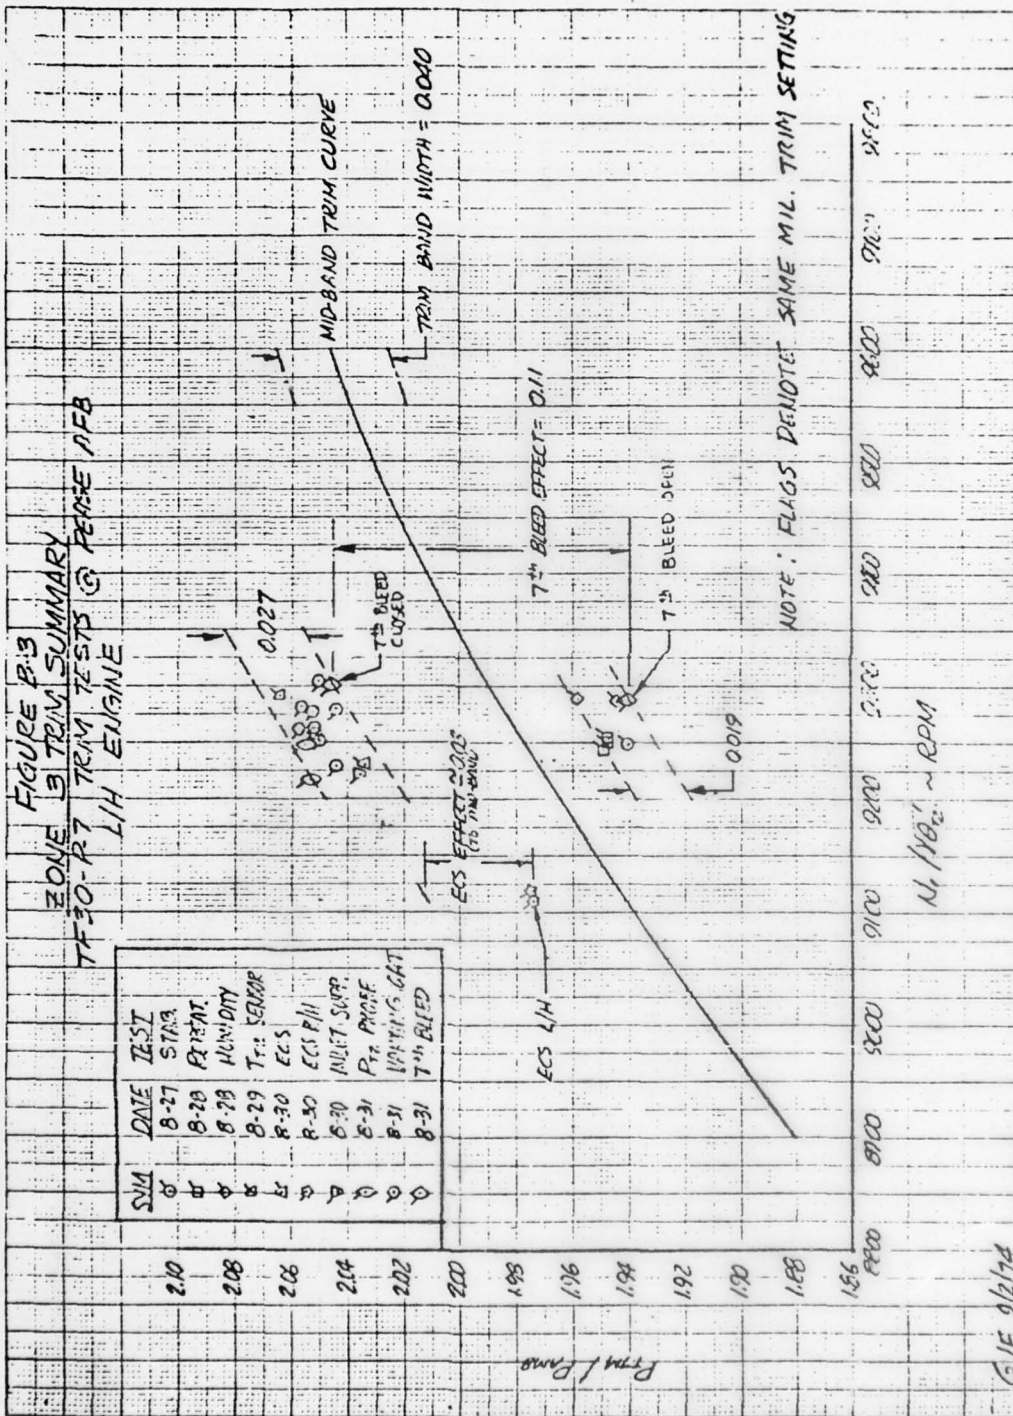 FIGURE B-3
ZONE 3 TRIM SUMMARY
TF30-P-7 TRIM TESTS @ PEASE AFB
L/H ENGINE
SYM DATE TEST
8-27 STAB.
8-28 REPEAT
8-28 HUMIDITY
8-29 TT2 SENSOR
8-30 ECS
8-30 ECS R/H
8-30 INLET SUPP.
8-31 PT2 PROBE
8-31
8-31 7th BLEED
MID-BAND TRIM CURVE
TRIM BAND WIDTH = 0.040
0.027
7th BLEED
CLOSED
ECS EFFECT ≈
(TO MID-BAND)
7th BLEED EFFECT = 0.11
7th BLEED OPEN
0.019
ECS L/H
NOTE: FLAGS DENOTE SAME MIL. TRIM SETTING
2.10
2.08
2.06
2.04
2.02
2.00
1.98
1.96
1.94
1.92
1.90
1.88
1.86
8800 8900 9000 9100 9200 9300 9400 9500 9600 9700 9800
~ RPM
9/2/74